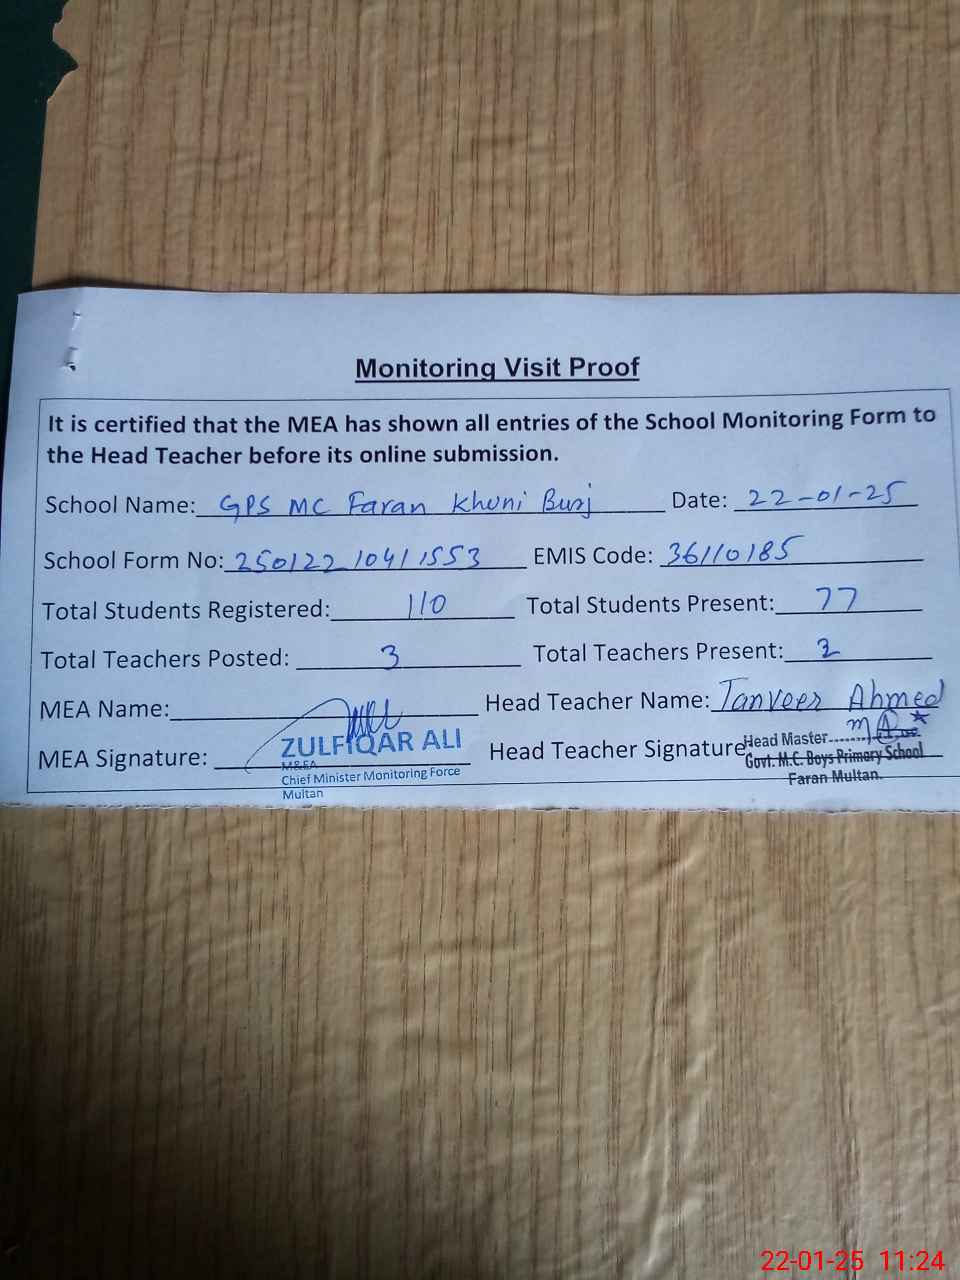 Monitoring Visit Proof
It is certified that the MEA has shown all entries of the School Monitoring Form to
the Head Teacher before its online submission.
School Name: GPS MC Faran Khuni Burj Date: 22-01-25
School Form No: 250122 1041 1553 EMIS Code: 36110185
Total Students Registered: 110 Total Students Present: 77
Total Teachers Posted: 3 Total Teachers Present:
MEA Name: Head Teacher Name: Tanveer Ahmed
MEA Signature: ZULFIQAR ALI Head Teacher Signature
M&EA
Chief Minister Monitoring Force
Multan
Head Master
Govt. M.C. Boys Primary School
Faran Multan.
22-01-25 11:24